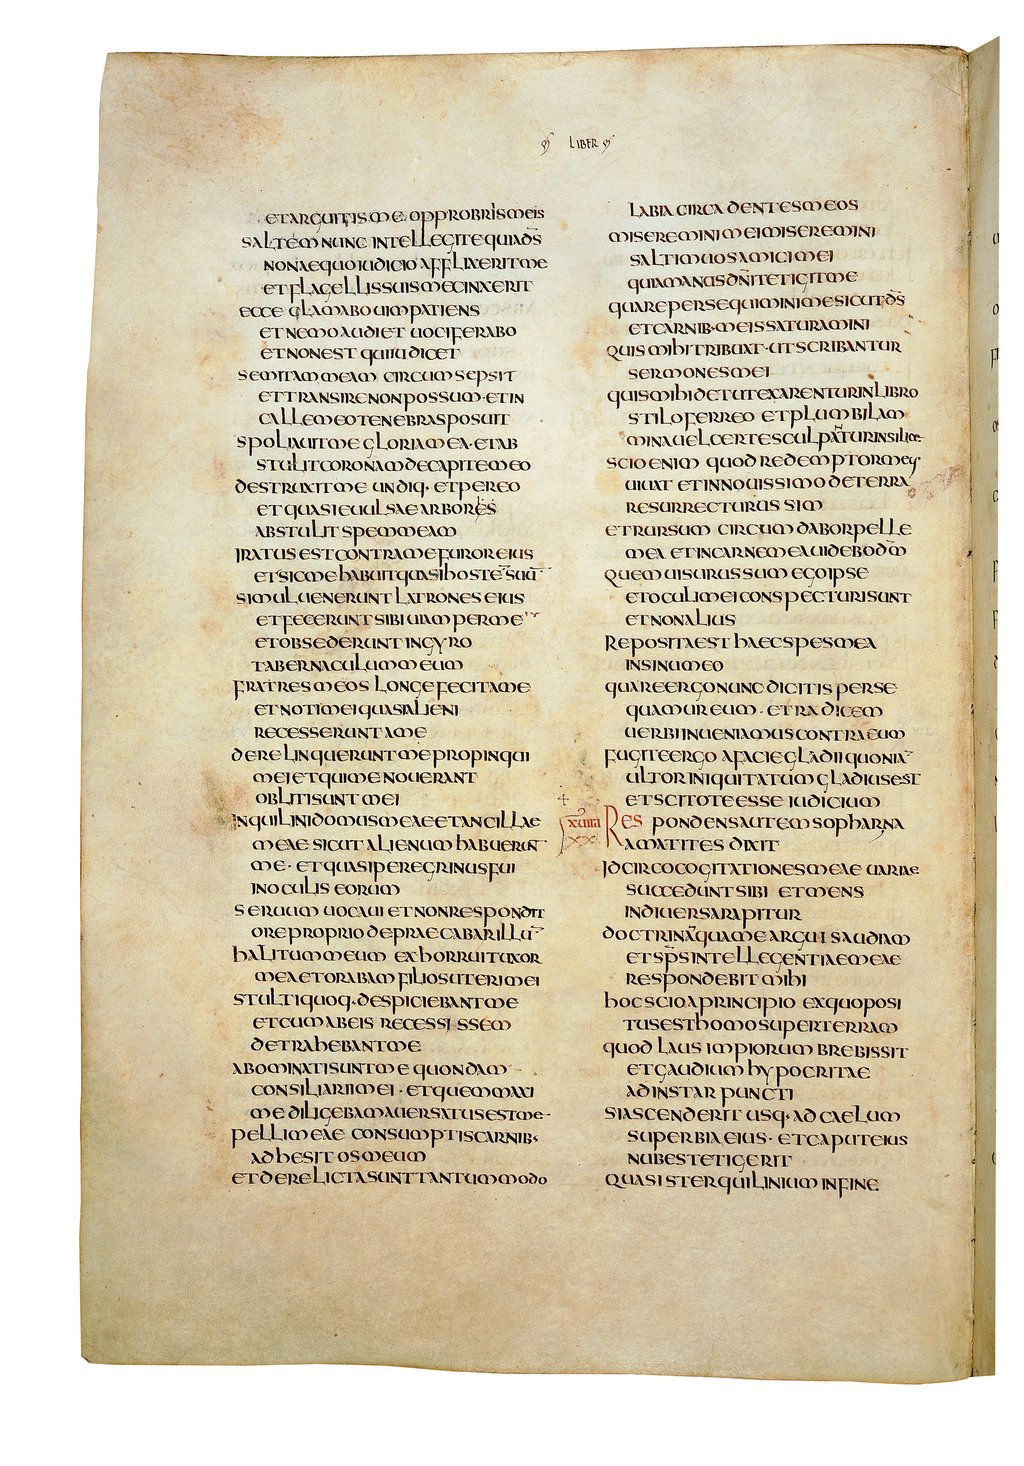 LIBER
ET ARGUITIS ME OPPROBRIIS MEIS
SALTEM NUNC INTELLEGITE QUIA D̅S̅
NON AEQUO IUDICIO AFFLIXERIT ME
ET FLAGELLIS SUIS ME CINXERIT
ECCE CLAMABO UIM PATIENS
ET NEMO AUDIET UOCIFERABO
ET NON EST QUI IUDICET
SEMITAM MEAM CIRCUMSEPSIT
ET TRANSIRE NON POSSUM · ET IN
CALLE MEO TENEBRAS POSUIT
SPOLIAUIT ME GLORIA MEA · ET AB
STULIT CORONAM DE CAPITE MEO
DESTRUXIT ME UNDIQ· ET PEREO
ET QUASI EUULSAE ARBORES
ABSTULIT SPEM MEAM
IRATUS EST CONTRA ME FUROR EIUS
ET SIC ME HABUIT QUASI HOSTE̅ SUU̅
SIMUL UENERUNT LATRONES EIUS
ET FECERUNT SIBI UIAM PER ME
ET OBSEDERUNT IN GYRO
TABERNACULUM MEUM
FRATRES MEOS LONGE FECIT A ME
ET NOTI MEI QUASI ALIENI
RECESSERUNT A ME
DERELINQUERUNT ME PROPINQUI
MEI ET QUI ME NOUERANT
OBLITI SUNT MEI
INQUILINI DOMUS MEAE ET ANCILLAE
MEAE SICUT ALIENUM HABUERUNT
ME · ET QUASI PEREGRINUS FUI
IN OCULIS EORUM
SERUUM UOCAUI ET NON RESPONDIT
ORE PROPRIO DEPRAECABAR ILLU̅
HALITUM MEUM EXHORRUIT UXOR
MEA ET ORABAM FILIOS UTERI MEI
STULTI QUOQ· DESPICIEBANT ME
ET CUM AB EIS RECESSISSEM
DETRAHEBANT ME
ABOMINATI SUNT ME QUONDAM
CONSILIARII MEI · ET QUEM MAXI
ME DILIGEBAM AUERSATUS EST ME ·
PELLI MEAE CONSUMPTIS CARNIB·
ADHESIT OS MEUM
ET DERELICTA SUNT TANTUMMODO
LABIA CIRCA DENTES MEOS
MISEREMINI MEI MISEREMINI
SALTIM UOS AMICI MEI
QUIA MANUS DN̅I TETIGIT ME
QUARE PERSEQUIMINI ME SICUT D̅S̅
ET CARNIB· MEIS SATURAMINI
QUIS MIHI TRIBUAT · UT SCRIBANTUR
SERMONES MEI
QUIS MIHI DET UT EXARENTUR IN LIBRO
STILO FERREO ET PLUMBI LAM
MINA UEL CERTE SCULPANTUR IN SILICE
SCIO ENIM QUOD REDEMPTOR MEUS
UIUAT ET IN NOUISSIMO DE TERRA
RESURRECTURUS SIM
ET RURSUM CIRCUMDABOR PELLE
MEA ET IN CARNE MEA UIDEBO D̅M̅
QUEM UISURUS SUM EGO IPSE
ET OCULI MEI CONSPECTURI SUNT
ET NON ALIUS
REPOSITA EST HAEC SPES MEA
IN SINU MEO
QUARE ERGO NUNC DICITIS PERSE
QUAMUR EUM · ET RADICEM
UERBI INUENIAMUS CONTRA EUM
FUGITE ERGO A FACIE GLADII QUONIA̅
ULTOR INIQUITATUM GLADIUS EST
ET SCITOTE ESSE IUDICIUM
XUIIII RESPONDENS AUTEM SOPHAR NA
XX AMATITES DIXIT
IDCIRCO COGITATIONES MEAE UARIAE
SUCCEDUNT SIBI ET MENS
IN DIUERSA RAPITUR
DOCTRINA̅ QUA ME ARGUIS AUDIAM
ET SP̅S INTELLEGENTIAE MEAE
RESPONDEBIT MIHI
HOC SCIO A PRINCIPIO EX QUO POSI
TUS EST HOMO SUPER TERRAM
QUOD LAUS IMPIORUM BREBIS SIT
ET GAUDIUM HYPOCRITAE
AD INSTAR PUNCTI
SI ASCENDERIT USQ· AD CAELUM
SUPERBIA EIUS · ET CAPUT EIUS
NUBES TETIGERIT
QUASI STERQUILINIUM IN FINE